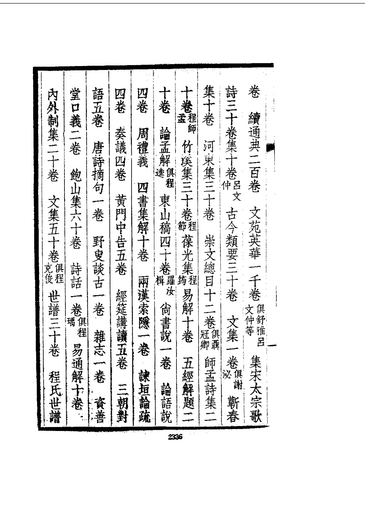 卷　續通典二百卷　文苑英華一千卷俱舒雅呂文仲等　集宋太宗歌
詩三十卷集十卷呂文仲　古今類要三十卷　文集一卷俱謝泌　蘄春
集十卷　河東集三十卷　崇文總目十二卷俱聶冠卿　師孟詩集二
十卷程師孟　竹溪集三十卷程節　葆光集程筠　易解十卷　五經解題二
十卷　論孟解俱程逵　東山稿四十卷羅汝楫　尙書說一卷　論語說
四卷　周禮義　四書集解十卷　兩漢索隱一卷　諫垣論疏
四卷　奏議四卷　黃門中告五卷　經筵講讀五卷　三朝對
語五卷　唐詩摘句一卷　野叟談古一卷　雜志一卷　資善
堂口義二卷　鮑山集六十卷　詩話一卷俱程瑀　易通解十卷
內外制集二十卷　文集五十卷俱程克俊　世譜三十卷　程氏世譜
2336